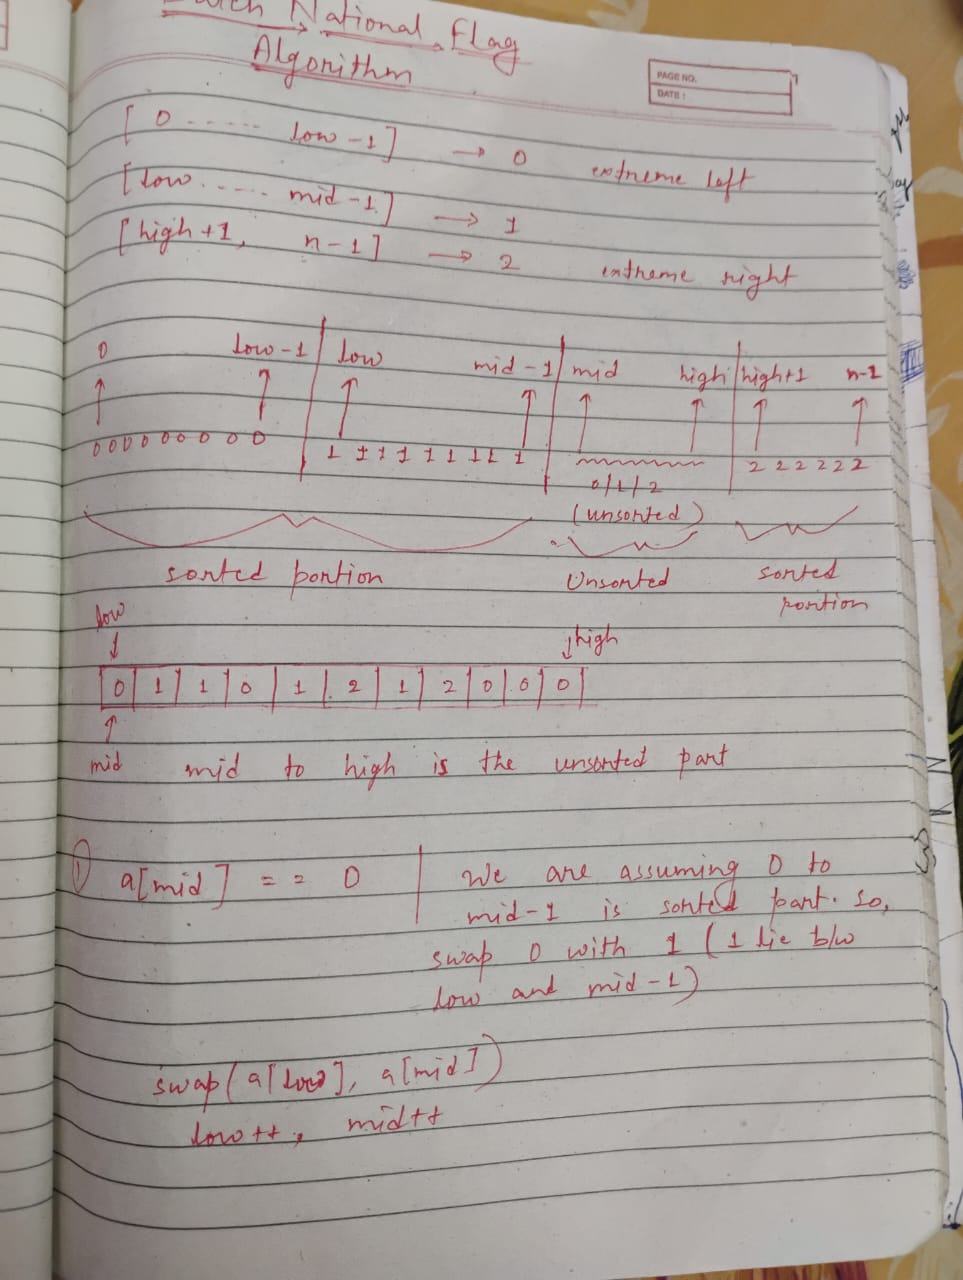 National Flag
Algorithm
PAGE NO.
DATE :
[ 0 ------ low -1 ] → 0 extreme left
[ low ----- mid -1 ] → 1
[ high +1, n-1 ] → 2 extreme right
0 low-1 low mid -1 mid high high+1 n-1
0 0 0 0 0 0 0 0 0 1 1 1 1 1 1 1 1 1 2 2 2 2 2 2
0/1/2
(unsorted)
sorted portion Unsorted sorted
portion
low
high
0 1 1 0 1 2 1 2 0 0 0
mid mid to high is the unsorted part
① a[mid] == 0 We are assuming 0 to
mid-1 is sorted part. So,
swap 0 with 1 (1 lie b/w
low and mid-1)
swap(a[low], a[mid])
low++, mid++